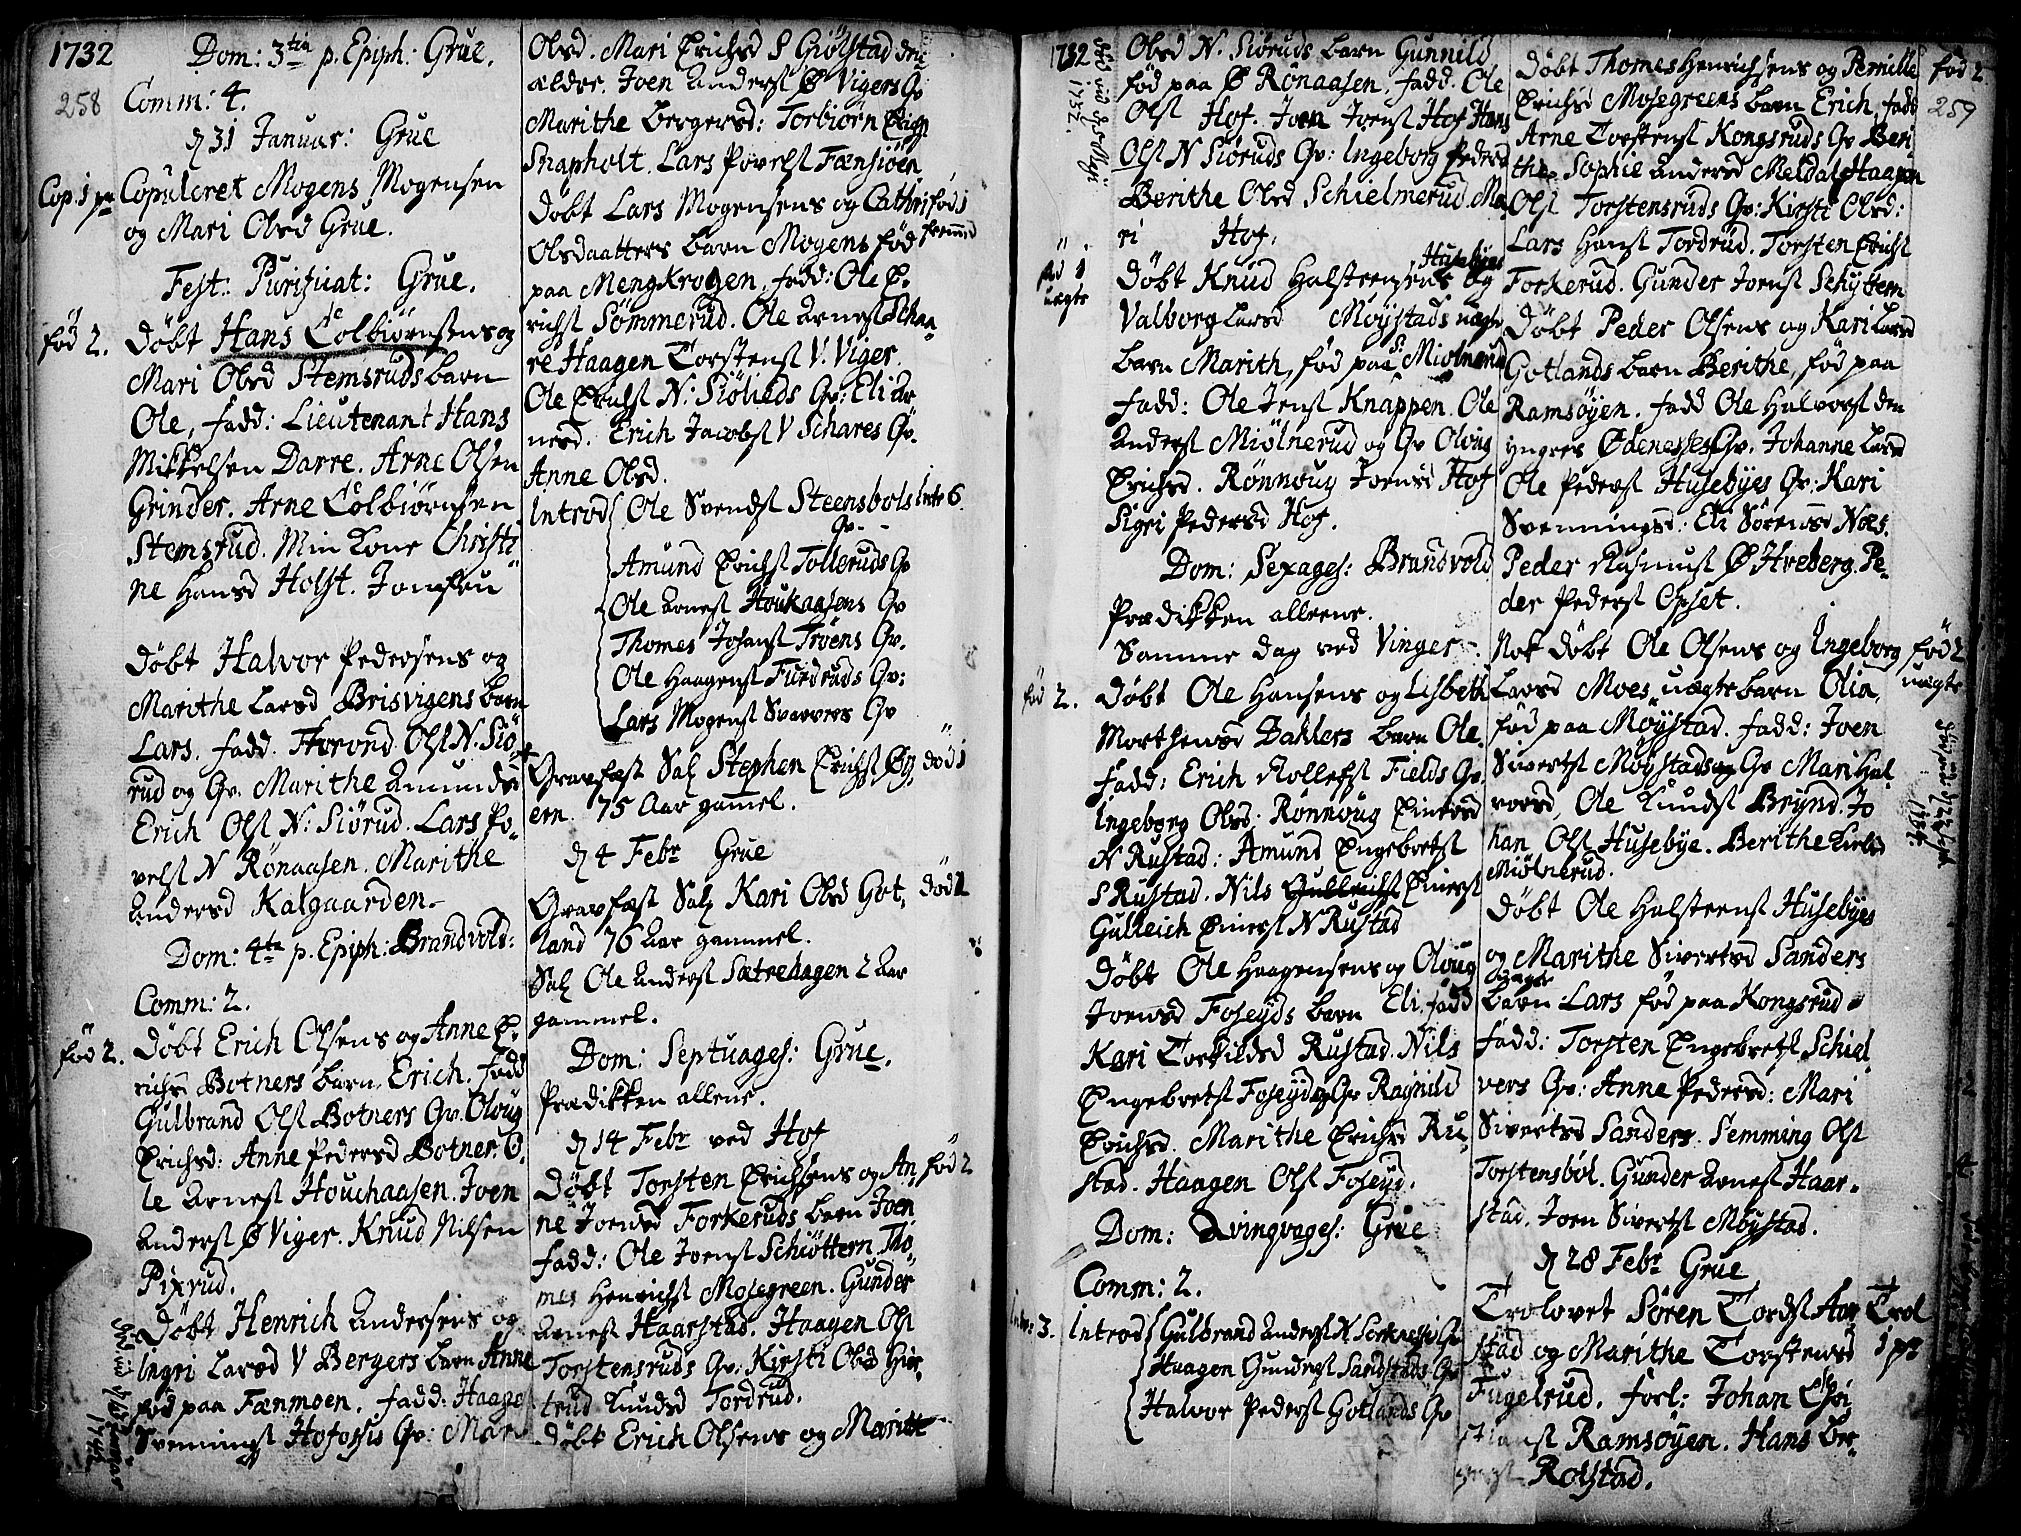 1732
258
Dom: 3tia p. Epiph: Grue.
Comm: 4.
d 31 Januar: Grue
Cop. 1 pr
Copuleret Mogens Mogensen
og Mari Olsd Grue.
Fest: Purificat: Grue.
fød 2.
Døbt Hans Colbiørnsens og
Mari Olsd Stemsruds barn
Ole, fadd: Lieutenant Hans
Mikkelsen Darre. Arne Olsen
Grinder. Arne Colbiørnsen
Stemsrud. Min Kone Christi
ne Hansd Holst. Jomfru
Døbt Halvor Pedersens og
Marithe Larsd Brisvigens barn
Lars. fadd. Trond Olst N. Siø
rud og Qv. Marithe Amunds
Erich Olst N: Siørud. Lars Po-
velst N Rønaasen. Marithe
Andersd Kalgaarden.
Dom: 4ta p. Epiph: Brandvold:
Comm: 2.
fød 2.
Døbt Erich Olsens og Anne E-
richsd Botners barn Erich. fadd
Gulbrand Olst Botners Qv. Oloug
Erichsd: Anne Pedersd Botner. O-
le Arnest Houchaasen. Joen
Anderst Ø Viger. Knud Nilsen
Pixrud.
Døbt Henrich Andersens og
Ingri Larsd V Bergers barn Anne
fød paa Fænmoen. fadd: Haagen
Svennings Hofoshs Qv: Mari
Olsd. Mari Erichsd S Giølstad den
ældre. Joen Anderst Ø Vigers Qv
Marithe Bergersd: Torbiørn Erichst
Snapholt. Lars Povelst Fænsiøen
Døbt Lars Mogensens og Cathri
fød 1
Olsdaatters barn Mogens fød
paa Mengkrogen, fadd: Ole E-
richst Sømmerud. Ole Arnest Skaa-
re Haagen Torstenst V. Viger.
Ole Erichst N: Siølieds Qv: Eli Ar
nesd. Erich Jacobst V Schares Qv.
Anne Olsd.
Introd Ole Svendst Steensbols Intr 6
Qv.
Amund Erichst Tolleruds Qv
Ole Arnest Houkaasens Qv
Thomes Johanst Troens Qv.
Ole Haagenst Furdruds Qv:
Lars Mogenst Svarvers Qv
Gravfæst Sal Stephen Erichst Øy-
død 1
ern 75 Aar gammel.
d 4 Febr Grue
Gravfæst Sal Kari Olsd Got-
død 2
land 76 Aar gammel.
Sal Ole Anderst Sætrehagen 2 Aar
gammel.
Dom: Septuages: Grue.
Prædikken allene.
d 14 Febr ved Hof
Døbt Torsten Erichsens og An-
fød 2
ne Joensd Forkeruds barn Joen
fadd: Ole Joenst Schiøttern. Tho-
mes Henrichst Mosegreen. Gunder
Arnest Haarstad. Haagen Olst
Torstensruds Qv: Kirsti Olsd Hier-
trud Knudsd Tordrud.
Døbt Erich Olsens og Marithe
1732
Olsd N. Siøruds barn Gunnild
fød paa Ø Rønaasen. fadd. Ole
Olst Hof. Joen Joenst Hof Hans
Olst N Siøruds Qv: Ingeborg Pedersd
Berithe Olsd Schielmerud. Ma-
ri Hof.
fød 1
uægte
Døbt Knud Halstensens Husebyes og
Valborg Larsd Møystads uægte
barn Marith, fød paa S. Miølnerud
fadd: Ole Jenst Knappen. Ole
Anderst Miølnerud og Qv Oloug
Erichsd. Rønnoug Joensd Hof
Sigri Pedersd Hof.
Dom: Sexages: Brandvold
Prædikken alleene.
Samme dag ved Vinger
fød 2.
Døbt Ole Hansens og Lisbeth
Morthensd Dahlers barn Ole.
fadd: Erich Rollefst Fields Qv.
Ingeborg Olsd. Rønnoug Einersd
N Rustad: Amund Engebretst
S Rustad. Nils Einerst
Gulleich Einerst N Rustad
Døbt Ole Haagensens og Oloug
Joensd Foseyds barn Eli. fadd
Kari Torkildsd Rustad. Nils
Engebretst Foseyds Qv Raynild
Erichsd. Marithe Erichsd Ru-
stad. Haagen Olst Foseyd.
Dom: Qvinqvages: Grue
Comm: 2.
Intr: 3.
Introd Gulbrand Anderst N Sorknessis Qv
Haagen Gunderst Sandstads Qv
Halvor Pederst Gotlands Qv
Døbt Thomes Henrichsens og Pernille
fød 2
259
Erichsd Mosegreens barn Erich, fadd
Arne Torstenst Kongsruds Qv Beri-
the. Sophie Andersd Meldal Haagen
Olst Torstensruds Qv: Kirsti Olsd:
Lars Hanst Tordrud. Torsten Erichst
Forkerud. Gunder Joenst Schybern
Døbt Peder Olsens og Kari Larsd
Gotlands barn Berithe, fød paa
Ramsøyen. fadd Ole Halvorst den
yngres Ødenæsses Qv. Johanne Larsd
Ole Pederst Husebyes Qv: Kari
Svenningsd. Eli Sørensd Noes.
Peder Rasmust Ø Hreberg. Pe-
der Pederst Opset.
Nok døbt Ole Olsens og Ingeborg
fød 2
uægte
Larsd Moes uægte barn Olia,
fød paa Møystad. fadd: Joen
Sivertst Møystads Qv Mari Hal
vorsd, Ole Knudst Brynd. Jo
han Olst Husebye. Berithe Larsd
Miølnerud.
Døbt Ole Halsteenst Husebyes
og Marithe Sivertsd Sanders
uægte
barn Lars fød paa Kongsrud
fadd: Torsten Engebretst Schiel-
vers Qv: Anne Pedersd: Mari
Sivertsd Sanders. Semming Olst
Torstensbøl. Gunder Arnest Haar-
stad. Joen Sivertst Møystad.
d 28 Febr Grue
Trolovet Søren Tordst Aar
Trol
1 pr
stad og Marithe Torstensd
Fuglerud. forl: Johan Chri
stianst Ramsøyen. Hans
Rolstad.